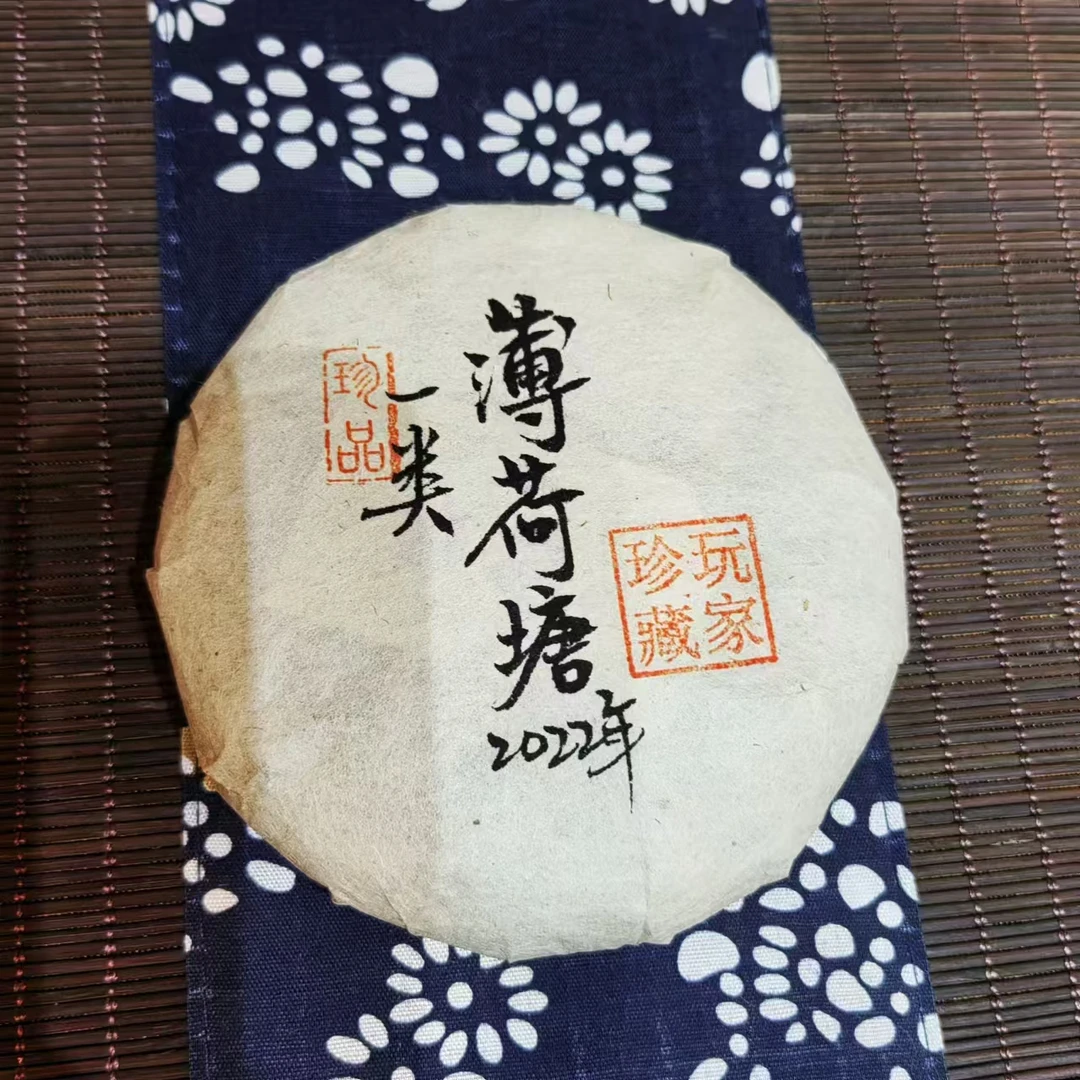 薄荷塘
2022年
一类
珍品
玩家
珍藏